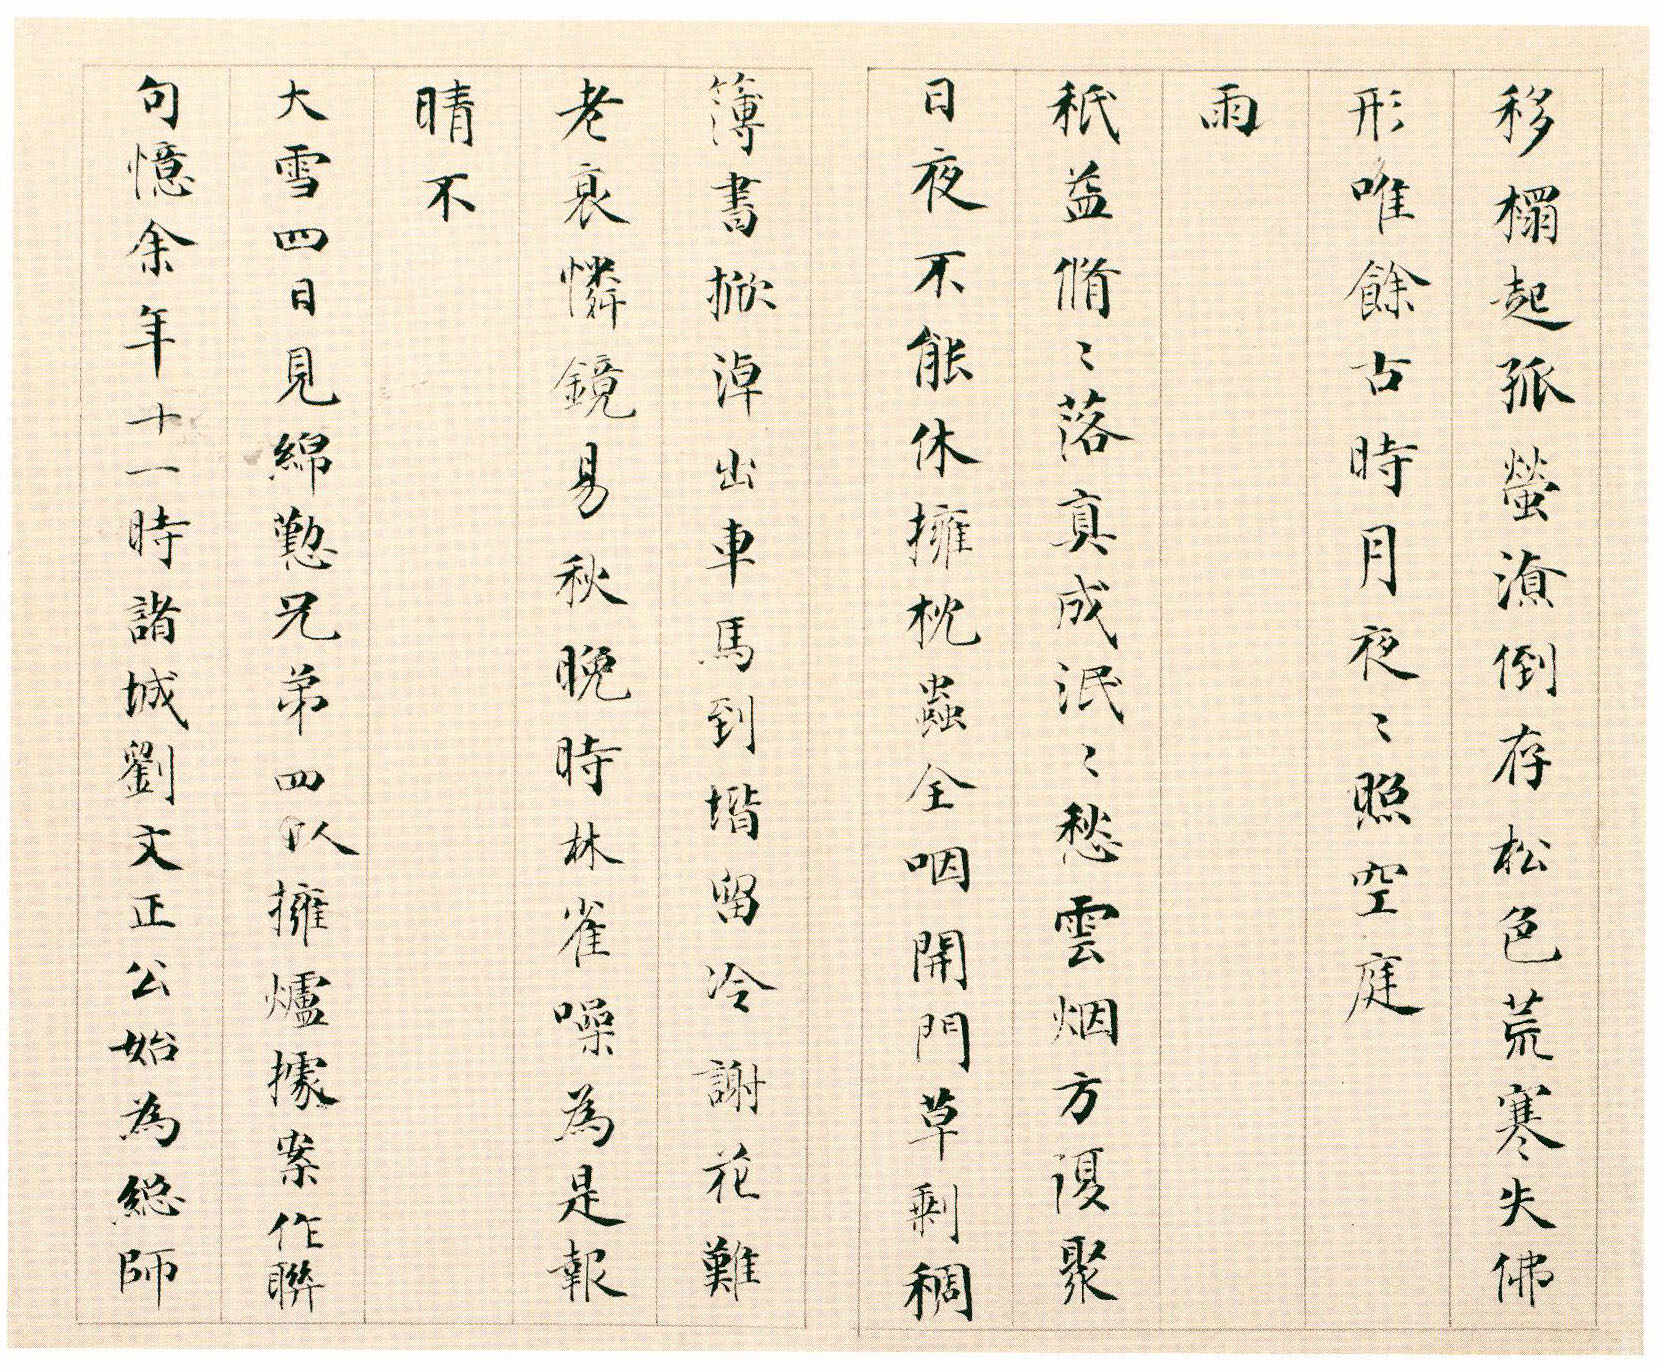 移榻起孤螢澬倒存松色荒寒失佛
形唯餘古時月夜〻照空庭
雨
秖益翛〻落真成泯〻愁雲烟方澓聚
日夜不能休擁枕蟲全咽開門草剩稠
簿書掀淖出車馬到堦留冷謝花難
老衰憐鏡易秋晚時林雀噪為是報
晴不
大雪四日見綿懃兄弟四以擁爐據案作聯
句憶余年十一時諸城劉文正公始為総師